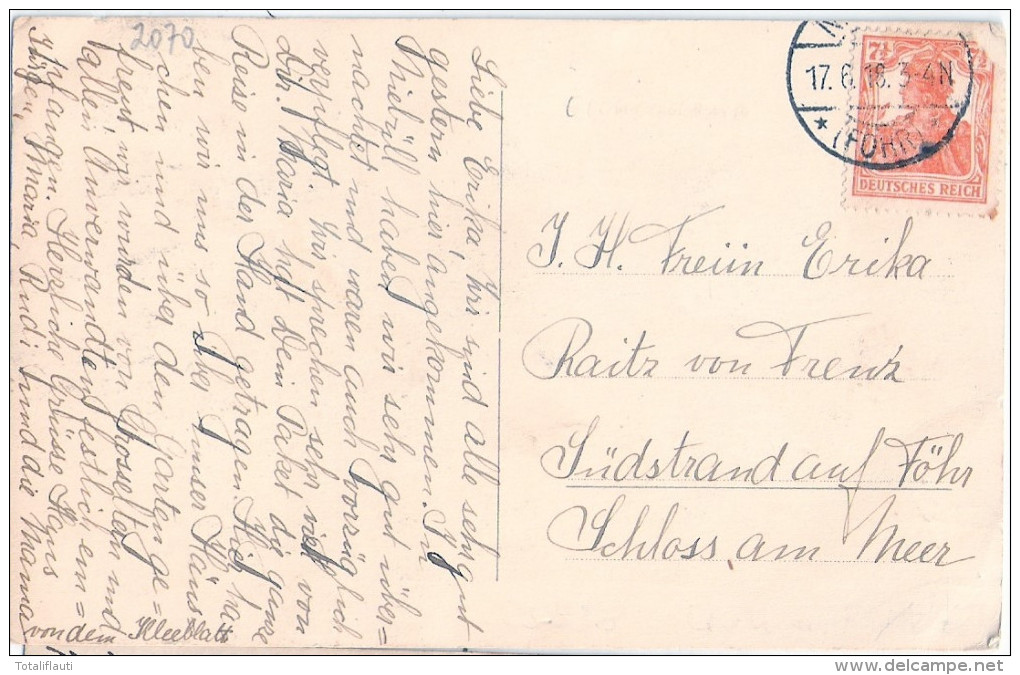 2070
Liebe Erika, Wir sind alle sehr gut
gestern hier angekommen. In
Niebüll haben wir sehr gut über=
nachtet und waren auch vorzüglich
verpflegt. Wir sprechen sehr viel von
Dir. Maria hat Dein Paket die ganze
Reise in der Hand getragen. Hier ha
ben wir uns so über unser Häus
chen und über den Garten ge=
freut wir wurden von Grosseltern und
allen Anverwandten festlich em=
pfangen. Herzliche Grüsse Hans
Jürgen, Maria, Rudi und die Mama
von dem Kleeblatt
17. 6. 18. 3-4N
* (FÖHR) *
7½
DEUTSCHES REICH
I. H. Freiin Erika
Raitz von Frenz
Südstrand auf Föhr
Schloss am Meer
Totaliflauti
http://www.delcampe.net